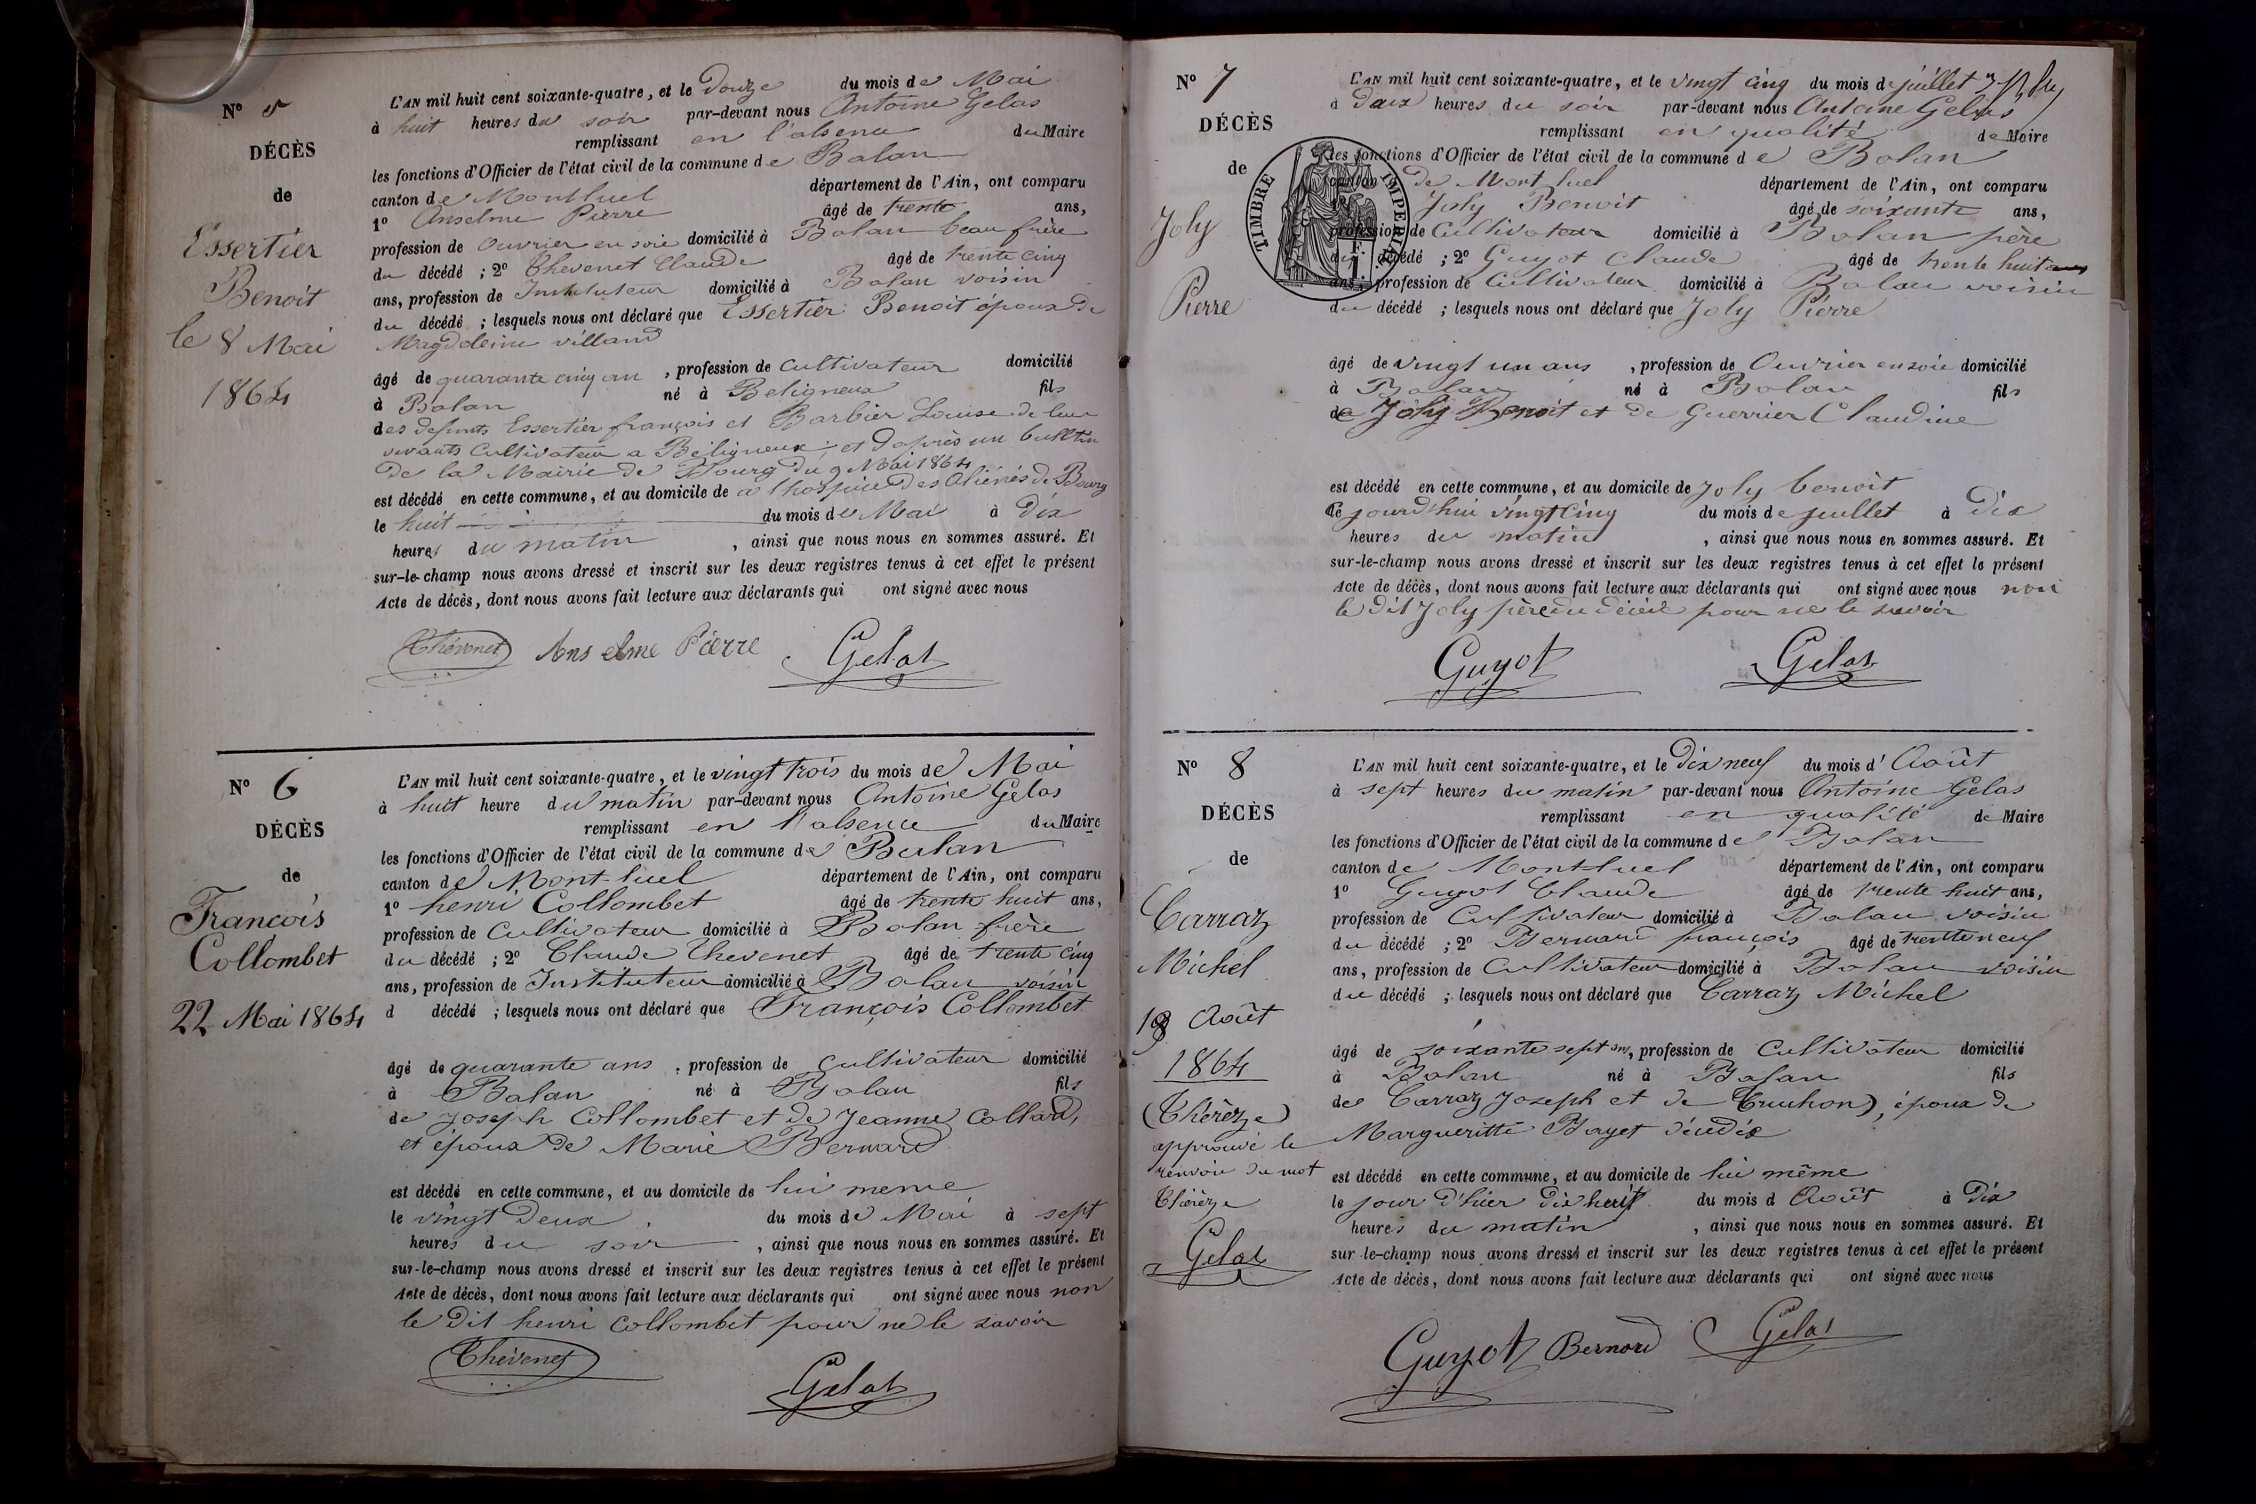 N° 5
DÉCÈS
de
Essertier
Benoit
le 8 Mai
1864
L'AN mil huit cent soixante-quatre, et le Douze du mois de Mai
à huit heures du soir par-devant nous Antoine Gelas
remplissant en l'absence du Maire
les fonctions d'Officier de l'état civil de la commune de Balan
canton de Montluel département de l'Ain, ont comparu
1° Anselme Pierre âgé de trente ans,
profession de Ouvrier en soie domicilié à Balan beau frère
du décédé ; 2° Thevenet Claude âgé de trente cinq
ans, profession de Instituteur domicilié à Balan voisin
du décédé ; lesquels nous ont déclaré que Essertier Benoit époux de
Magdeleine villand
âgé de quarante cinq ans, profession de Cultivateur domicilié
à Balan né à Beligneux fils
des defunts Essertier françois et Barbier Louise de leur
vivants Cultivateur a Béligneux ; et d'après un bulletin
de la Mairie de Bourg du 9 Mai 1864
est décédé en cette commune, et au domicile de a l'hospice des Aliénés de Bourg
le huit du mois de Mai à Dix
heures du matin, ainsi que nous nous en sommes assuré. Et
sur-le-champ nous avons dressé et inscrit sur les deux registres tenus à cet effet le présent
Acte de décès, dont nous avons fait lecture aux déclarants qui ont signé avec nous
Thévenet Anselme Pierre Gelas
N° 6
DÉCÈS
de
François
Collombet
22 Mai 1864
L'AN mil huit cent soixante-quatre, et le vingt trois du mois de Mai
à huit heure du matin par-devant nous Antoine Gelas
remplissant en l'absence du Maire
les fonctions d'Officier de l'état civil de la commune de Balan
canton de Mont-luel département de l'Ain, ont comparu
1° henri Collombet âgé de trente huit ans,
profession de Cultivateur domicilié à Balan frère
du décédé ; 2° Claude Thevenet âgé de trente cinq
ans, profession de Instituteur domicilié à Balan voisin
d décédé ; lesquels nous ont déclaré que François Collombet
âgé de quarante ans, profession de Cultivateur domicilié
à Balan né à Balan fils
de Joseph Collombet et de Jeanne Collard,
et époux de Marie Bernard
est décédé en cette commune, et au domicile de lui meme
le vingt Deux du mois de Mai à sept
heures du soir, ainsi que nous nous en sommes assuré. Et
sur-le-champ nous avons dressé et inscrit sur les deux registres tenus à cet effet le présent
Acte de décès, dont nous avons fait lecture aux déclarants qui ont signé avec nous non
le dit henri Collombet pour ne le savoir
Thévenet Gelas
N° 7
DÉCÈS
de
Joly
Pierre
TIMBRE IMPERIAL
1 F.
L'AN mil huit cent soixante-quatre, et le vingt cinq du mois de juillet
à Deux heures du soir par-devant nous Antoine Gelas
remplissant en qualité de Maire
les fonctions d'Officier de l'état civil de la commune de Balan
canton de Mont luel département de l'Ain, ont comparu
Joly Benoit âgé de soixante ans,
profession de Cultivateur domicilié à Balan père
du décédé ; 2° Guyot Claude âgé de trente huit
ans, profession de Cultivateur domicilié à Balan voisin
du décédé ; lesquels nous ont déclaré que Joly Pierre
âgé de vingt un ans, profession de Ouvrier en soie domicilié
à Balan né à Balan fils
de Joly Benoit et de Guerrier Claudine
est décédé en cette commune, et au domicile de Joly benoit
ce jourd'hui vingt cinq du mois de juillet à Dix
heures du matin, ainsi que nous nous en sommes assuré. Et
sur-le-champ nous avons dressé et inscrit sur les deux registres tenus à cet effet le présent
Acte de décès, dont nous avons fait lecture aux déclarants qui ont signé avec nous non
le dit Joly père du décédé pour ne le savoir
Guyot Gelas
N° 8
DÉCÈS
de
Carraz
Michel
18 Août
1864
(Thérèze)
approuvé le
renvoie du mot
Thérèze
Gelas
L'AN mil huit cent soixante-quatre, et le Dix neuf du mois d'Août
à sept heures du matin par-devant nous Antoine Gelas
remplissant en qualité de Maire
les fonctions d'Officier de l'état civil de la commune de Balan
canton de Montluel département de l'Ain, ont comparu
1° Guyot Claude âgé de trente huit ans,
profession de Cultivateur domicilié à Balan voisin
du décédé ; 2° Bernard françois âgé de trente neuf
ans, profession de Cultivateur domicilié à Balan voisin
du décédé ; lesquels nous ont déclaré que Carraz Michel
âgé de soixante sept ans, profession de Cultivateur domicilié
à Balan né à Balan fils
de Carraz Joseph et de Truchon), époux de
Margueritte Bayet
est décédé en cette commune, et au domicile de lui même
le jour d'hier dix huit du mois d Août à Dix
heures du matin, ainsi que nous nous en sommes assuré. Et
sur-le-champ nous avons dressé et inscrit sur les deux registres tenus à cet effet le présent
Acte de décès, dont nous avons fait lecture aux déclarants qui ont signé avec nous
Guyot Bernard Gelas